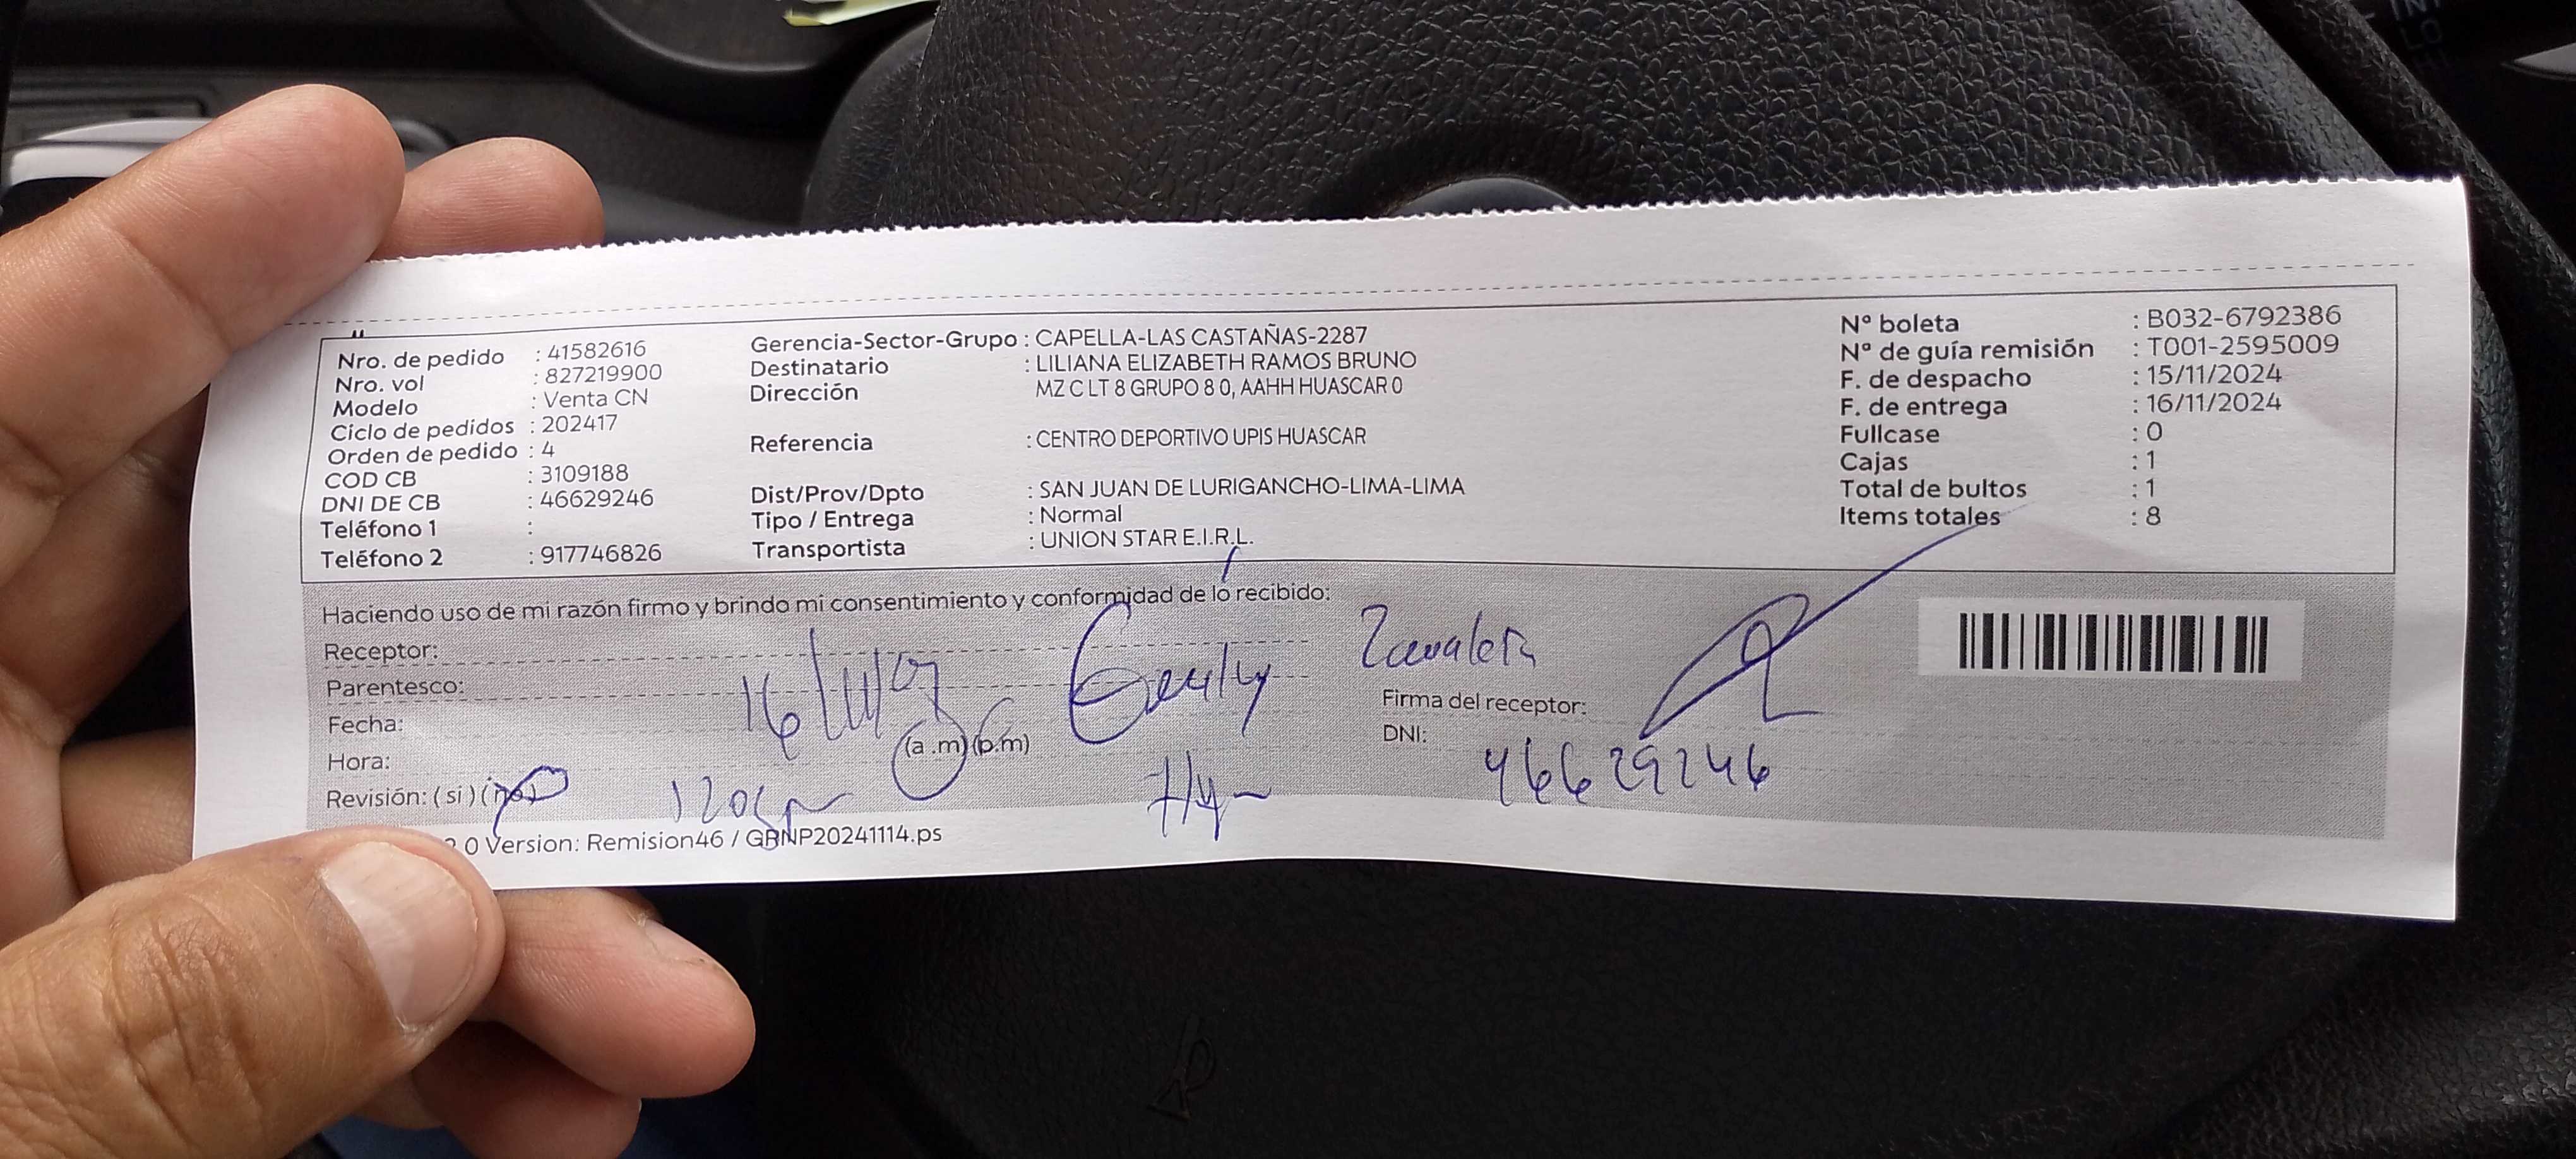 Nro. de pedido : 41582616
Nro. vol : 827219900
Modelo : Venta CN
Ciclo de pedidos : 202417
Orden de pedido : 4
COD CB : 3109188
DNI DE CB : 46629246
Teléfono 1 :
Teléfono 2 : 917746826
Gerencia-Sector-Grupo : CAPELLA-LAS CASTAÑAS-2287
Destinatario : LILIANA ELIZABETH RAMOS BRUNO
Dirección MZ C LT 8 GRUPO 8 0, AAHH HUASCAR 0
Referencia : CENTRO DEPORTIVO UPIS HUASCAR
Dist/Prov/Dpto : SAN JUAN DE LURIGANCHO-LIMA-LIMA
Tipo / Entrega : Normal
Transportista : UNION STAR E.I.R.L.
Nº boleta : B032-6792386
Nº de guía remisión : T001-2595009
F. de despacho : 15/11/2024
F. de entrega : 16/11/2024
Fullcase : 0
Cajas : 1
Total de bultos : 1
Items totales : 8
Haciendo uso de mi razón firmo y brindo mi consentimiento y conformidad de lo recibido:
Receptor:
Parentesco:
Fecha:
Hora: (a .m) (p.m)
Revisión: ( si ) (no)
Firma del receptor:
DNI: 46629246
0 Version: Remision46 / GRNP20241114.ps